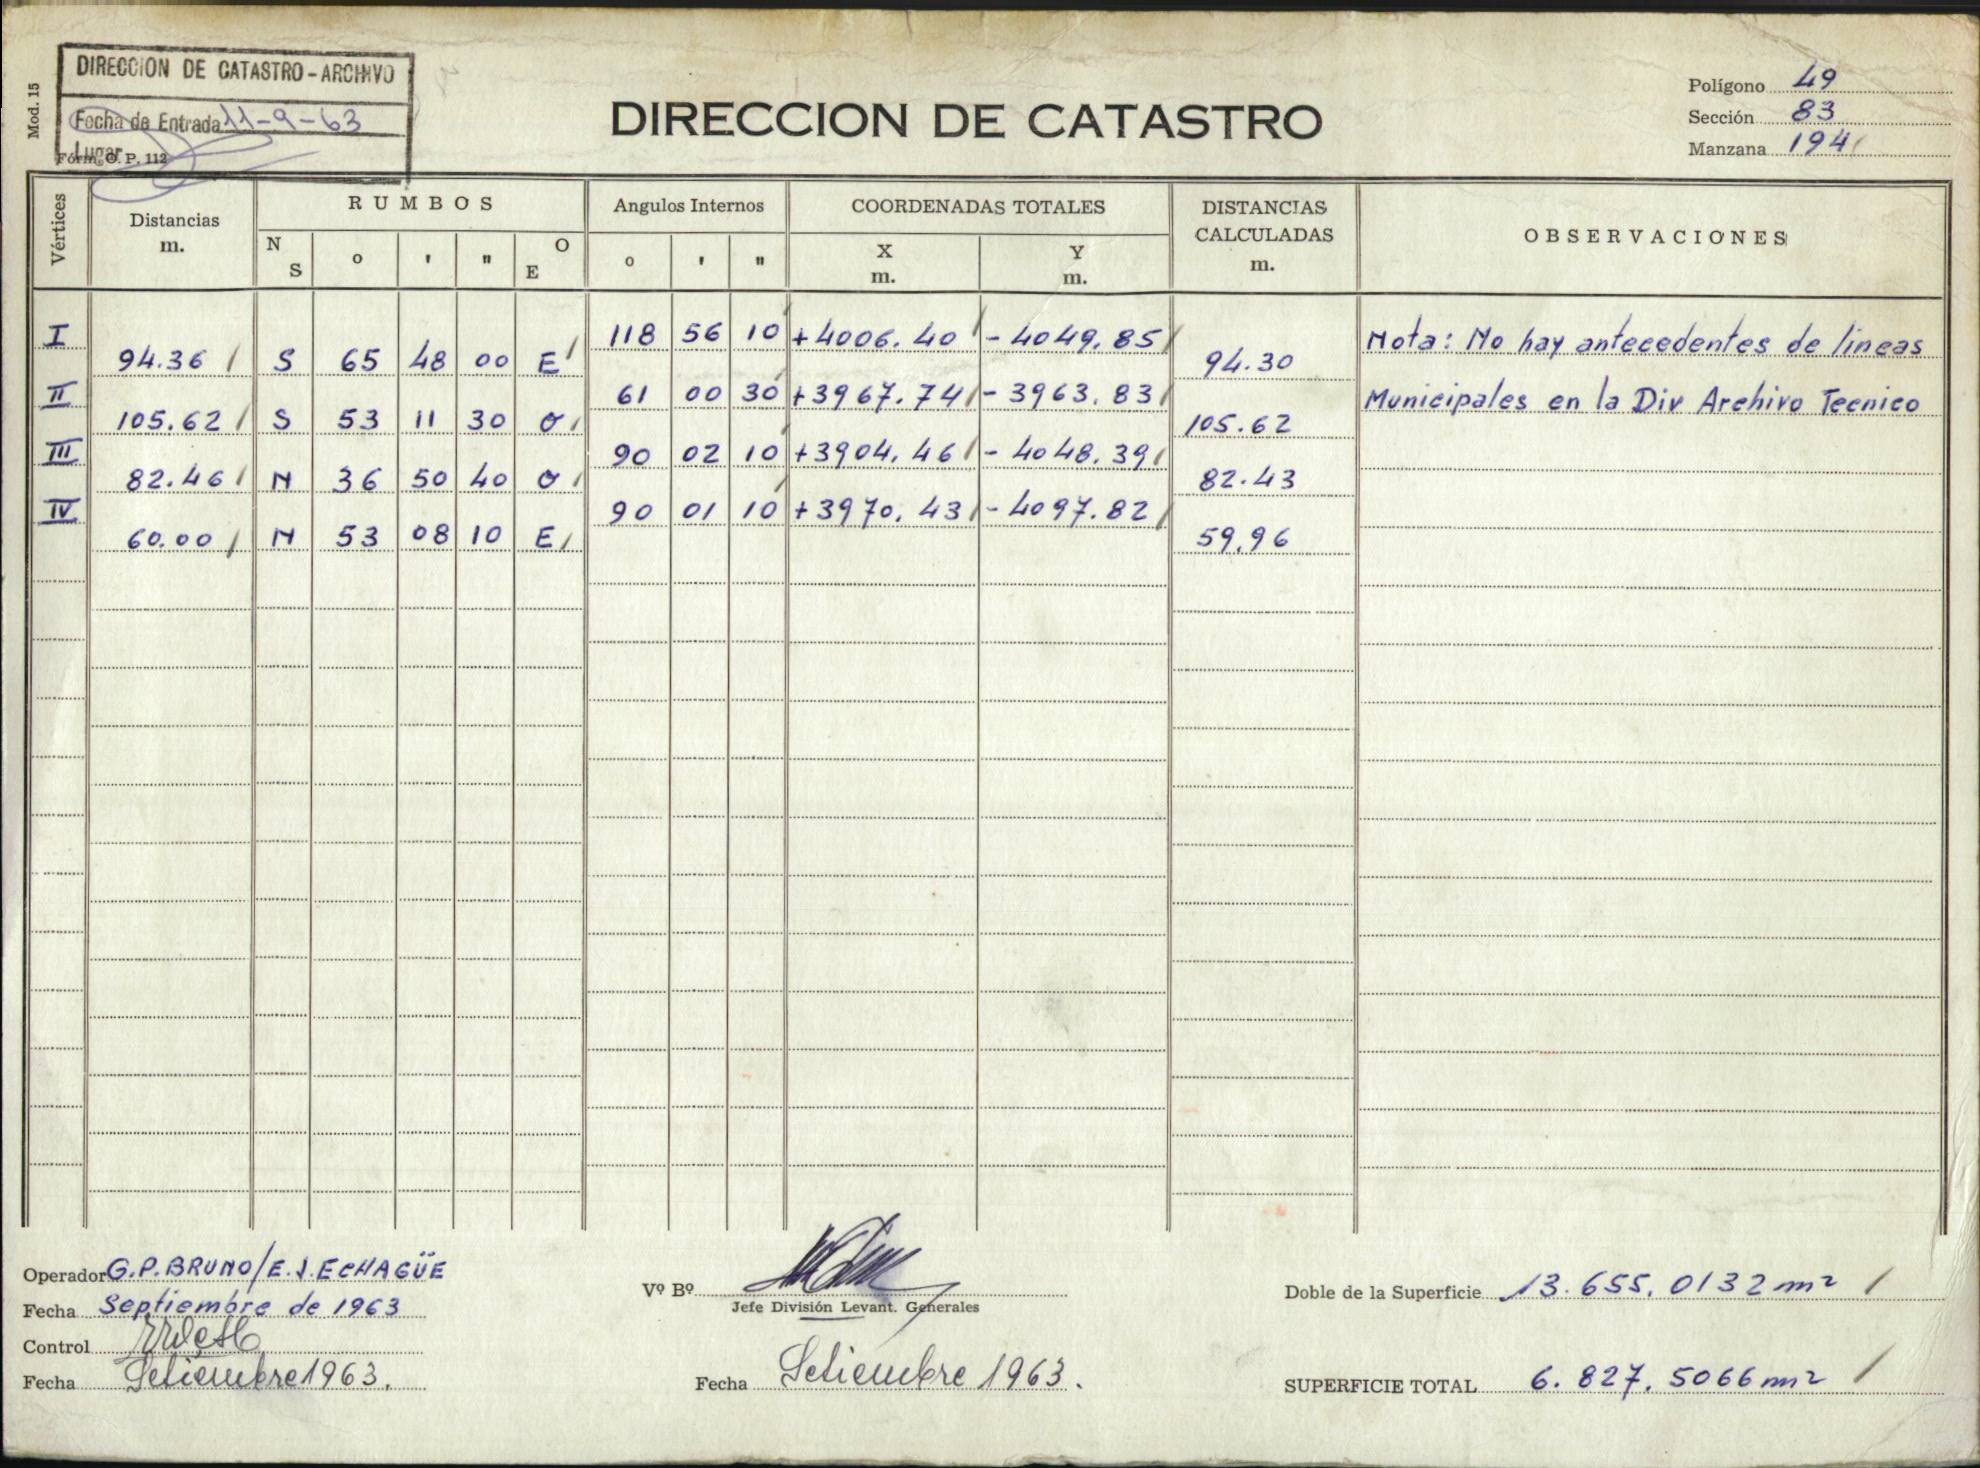 DIRECCION DE CATASTRO - ARCHIVO
Fecha de Entrada 11-9-63
Lugar
Mod. 15
Form. O. P. 112
DIRECCION DE CATASTRO
Polígono 49
Sección 83
Manzana 194
Vértices
Distancias m.
RUMBOS
N S o ' " O E
Angulos Internos
o ' "
COORDENADAS TOTALES
X m. Y m.
DISTANCIAS CALCULADAS m.
OBSERVACIONES
I 118 56 10 +4006.40 -4049.85 Nota: No hay antecedentes de lineas
94.36 S 65 48 00 E 94.30
II 61 00 30 +3967.74 -3963.83 Municipales en la Div Archivo Tecnico
105.62 S 53 11 30 O 105.62
III 90 02 10 +3904.46 -4048.39
82.46 N 36 50 40 O 82.43
IV 90 01 10 +3970.43 -4097.82
60.00 N 53 08 10 E 59.96
Operador G.P.BRUNO/E.J.ECHAGÜE
Fecha Septiembre de 1963
Control
Fecha Setiembre 1963.
Vº Bº
Jefe División Levant. Generales
Fecha Setiembre 1963.
Doble de la Superficie 13.655,0132 m²
SUPERFICIE TOTAL 6.827,5066 m²